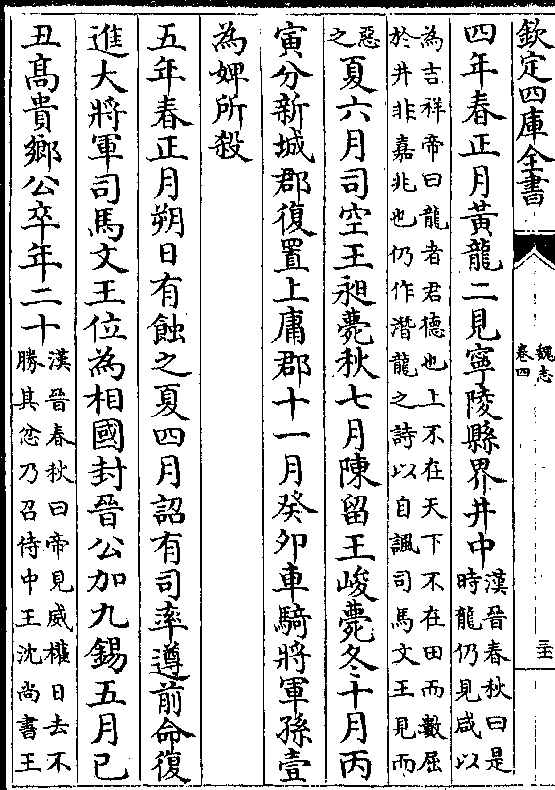 欽定四庫全書
魏志
卷四
三十三
四年春正月黃龍二見寧陵縣界井中漢晉春秋曰是
時龍仍見咸以
為吉祥帝曰龍者君德也上不在天下不在田而數屈
於井非嘉兆也仍作潛龍之詩以自諷司馬文王見而
惡
之夏六月司空王昶薨秋七月陳留王峻薨冬十月丙
寅分新城郡復置上庸郡十一月癸卯車騎將軍孫壹
為婢所殺
五年春正月朔日有蝕之夏四月詔有司率遵前命復
進大將軍司馬文王位為相國封晉公加九錫五月己
丑髙貴鄉公卒年二十漢晉春秋曰帝見威權日去不
勝其忿乃召侍中王沈尚書王